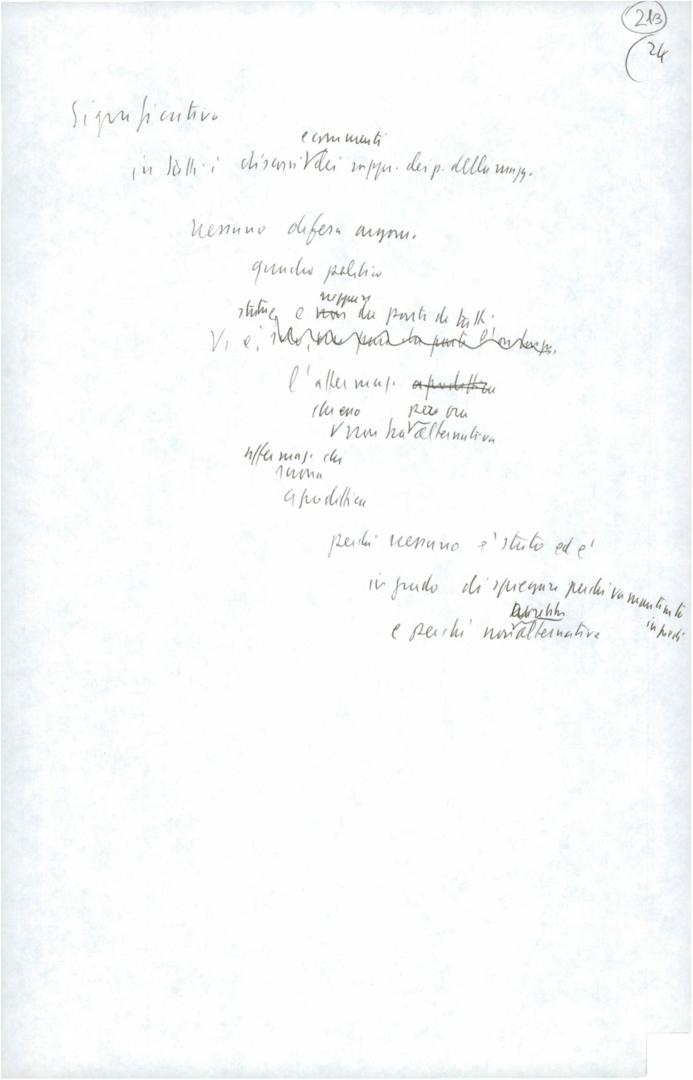 213
24
Significativo
e commenti
in tutti i discorsi dei rappr. dei p. della magg.
nessuna difesa argom.
quadro politico
neppure
e non da parte di tutti.
Vi è,
l'affermaz. apodittica
che no pero ora
non ha alternativa
affermaz. che
suona
apodittica
perché nessuno è stato ed è
in grado di spiegare perché va mantenuto
in piedi
avrebbe
e perché non alternative